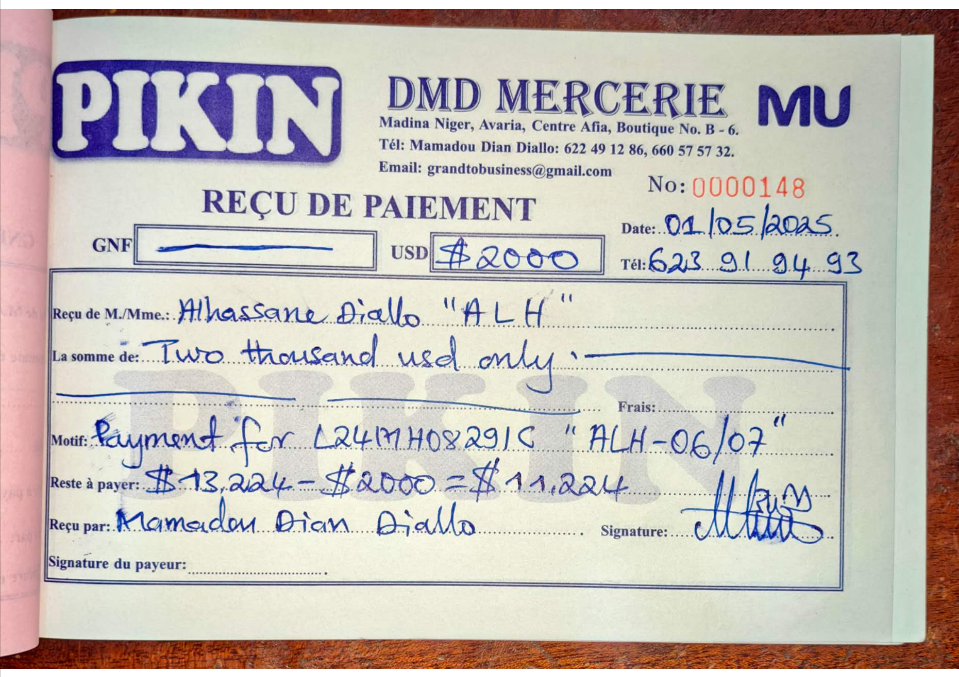 PIKIN
DMD MERCERIE
MU
Madina Niger, Avaria, Centre Afia, Boutique No. B - 6.
Tél: Mamadou Dian Diallo: 622 49 12 86, 660 57 57 32.
Email: grandtobusiness@gmail.com
No: 0000148
REÇU DE PAIEMENT
Date: 01/05/2025.
GNF
USD $2000
Tél: 623 91 94 93
Reçu de M./Mme.: Alhassane Diallo "ALH"
La somme de: Two thousand usd only.
Frais:
Motif: Payment for L24MH0829IC "ALH-06/07"
Reste à payer: $13,224 - $2000 = $11,224
Reçu par: Mamadou Dian Diallo
Signature:
Signature du payeur:
PIKIN